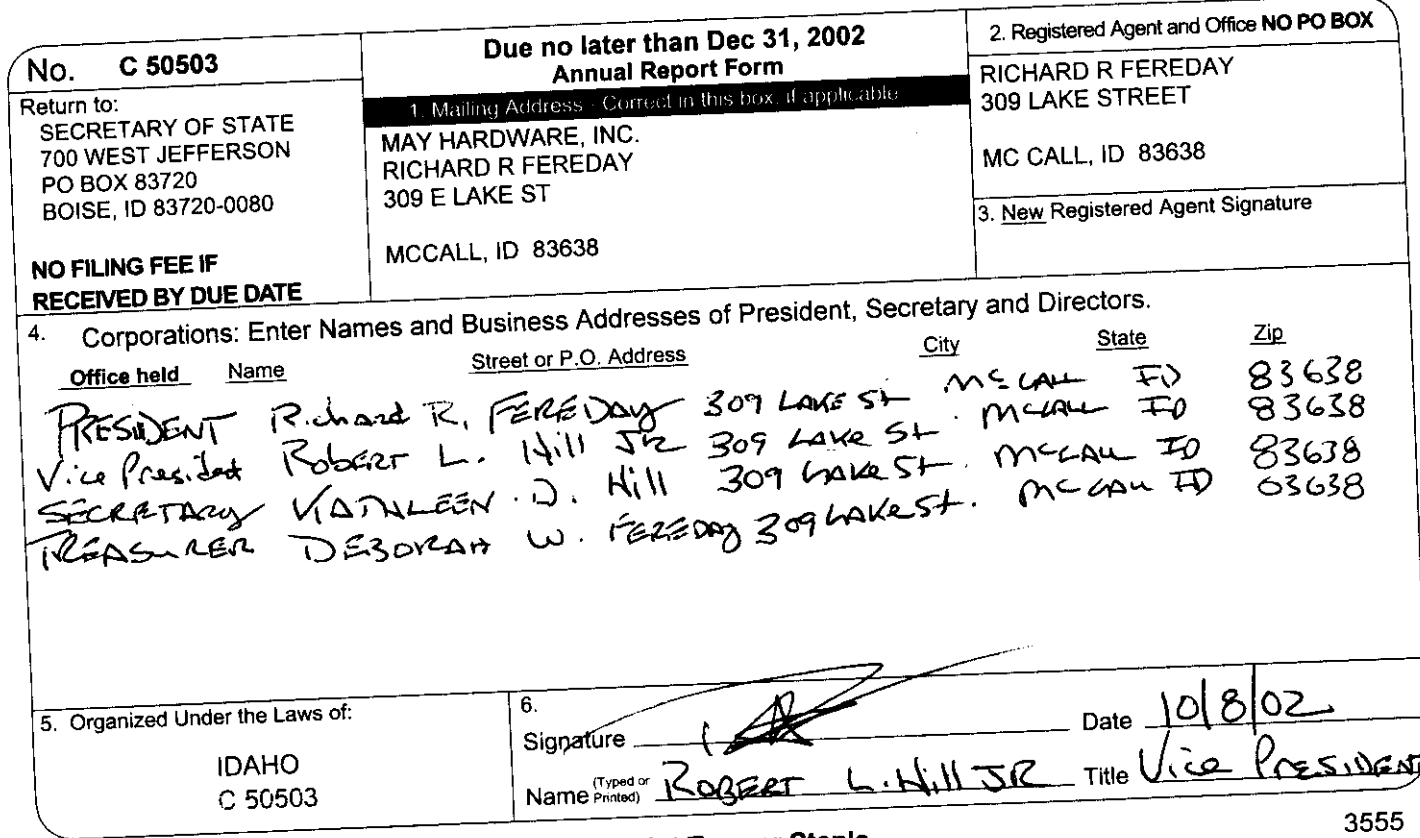 No. C 50503
Return to:
SECRETARY OF STATE
700 WEST JEFFERSON
PO BOX 83720
BOISE, ID 83720-0080
NO FILING FEE IF
RECEIVED BY DUE DATE
Due no later than Dec 31, 2002
Annual Report Form
1. Mailing Address - Correct in this box, if applicable
MAY HARDWARE, INC.
RICHARD R FEREDAY
309 E LAKE ST
MCCALL, ID 83638
2. Registered Agent and Office NO PO BOX
RICHARD R FEREDAY
309 LAKE STREET
MC CALL, ID 83638
3. New Registered Agent Signature
4. Corporations: Enter Names and Business Addresses of President, Secretary and Directors.
Office held Name Street or P.O. Address City State Zip
PRESIDENT Richard R. FEREDAY 309 LAKE St McCALL ID 83638
Vice President RobERT L. Hill JR 309 LAKE St. McCALL ID 83638
SECRETARY KATHLEEN D. Hill 309 LAKE St. McCALL ID 83638
TREASURER DEBORAH W. FEREDAY 309 LAKE St. McCALL ID 83638
5. Organized Under the Laws of:
IDAHO
C 50503
6.
Signature
Date 10/8/02
Name (Typed or Printed) ROBERT L. Hill JR Title Vice PRESIDENT
3555